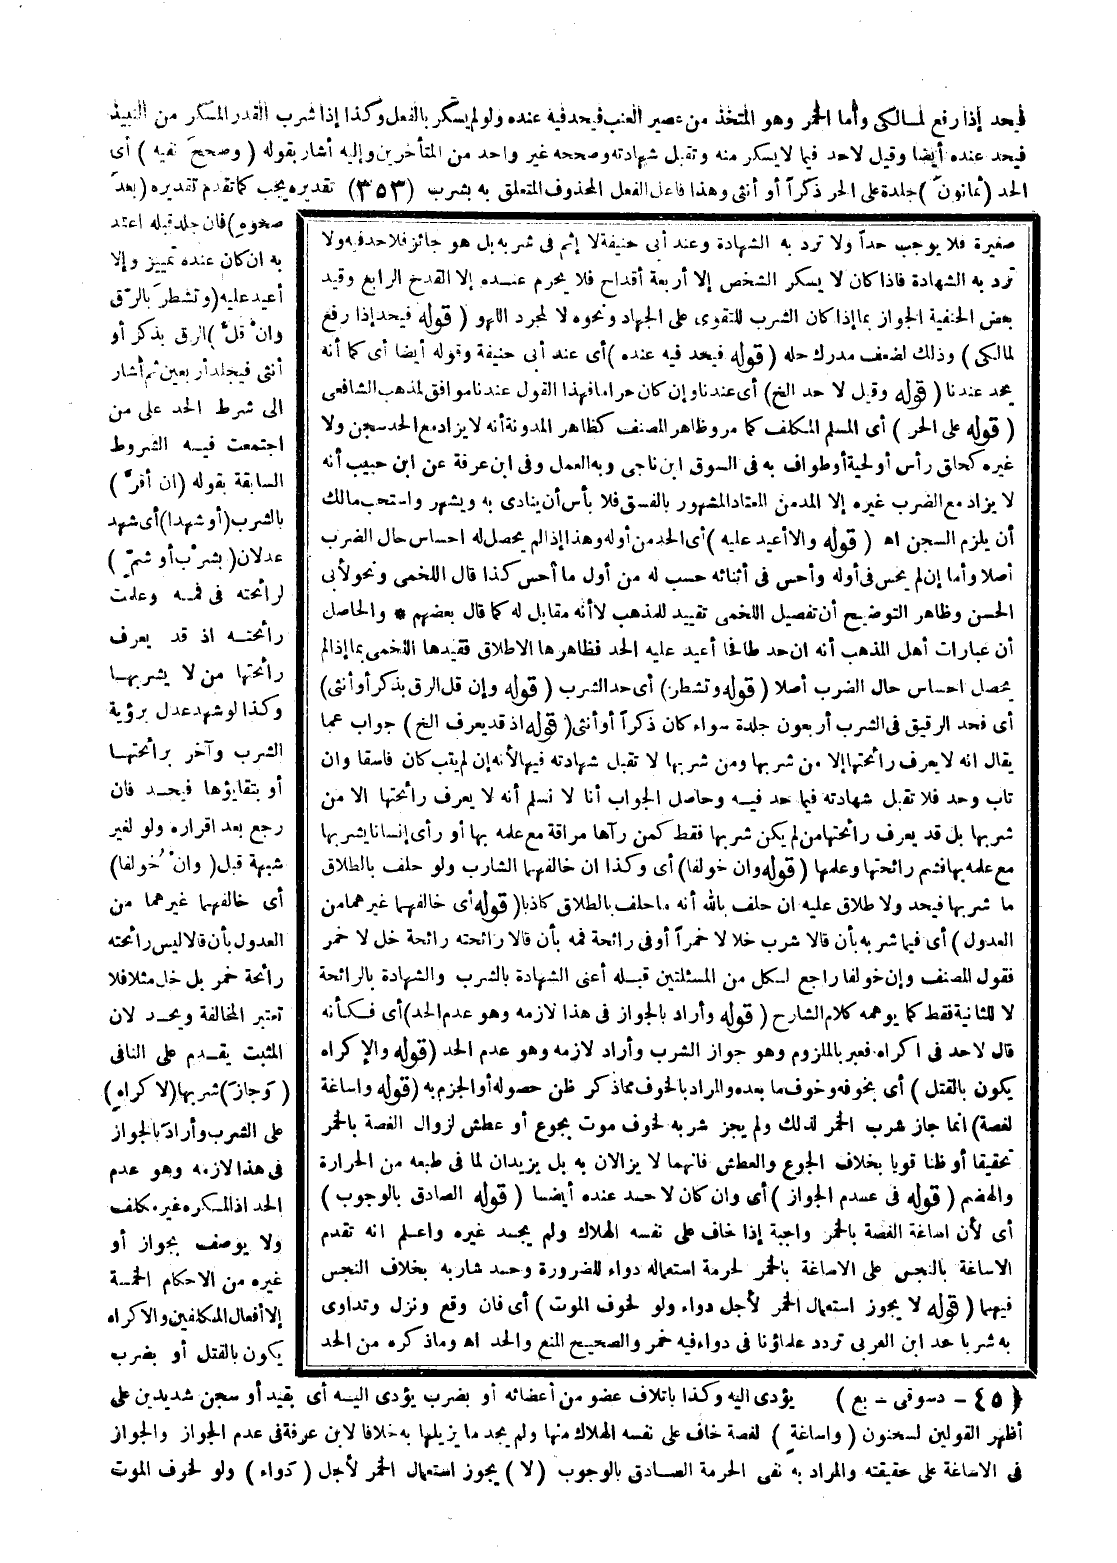 فيحد إذا رفع لمالكى وأما الخمر وهو المتخذ من عصير العنب فيحد فيه عنده ولو لم يسكر بالفعل وكذا إذا شرب القدر المسكر من النبيذ
فيحد عنده أيضا وقيل لا حد فيما لا يسكر منه وتقبل شهادته وصححه غير واحد من المتأخرين وإليه أشار بقوله ( وصحح نفيه ) أى
الحد (ثمانون) جلدة على الحر ذكراً أو أنثى وهذا فاعل الفعل المحذوف المتعلق به بشرب (٣٥٣) تقديره يجب كما تقدم تقديره (بعد
صحوه) فان جلد قبله اعتد
به ان كان عنده تمييز وإلا
أعيد عليه (وتشطر بالرق
وان قل) الرق بذكر أو
أنثى فيجلد أربعين ثم أشار
الى شرط الحد على من
اجتمعت فيه الشروط
السابقة بقوله (ان أقر )
بالشرب (أو شهدا) أى شهد
عدلان ( بشرب أو شم )
لرائحته فى فمه وعلمت
رائحته اذ قد يعرف
رائحتها من لا يشربها
وكذا لو شهد عدل برؤية
الشرب وآخر برائحتها
أو بتقايؤها فيحد فان
رجع بعد اقراره ولو لغير
شبهة قبل ( وان خولفا)
أى خالفهما غيرهما من
العدول بأن قالا ليس رائحته
رائحة خمر بل خل مثلا فلا
تعتبر المخالفة ويحد لان
المثبت يقدم على النافى
( وجاز) شربها (لاكراه)
على الشرب وأراد بالجواز
فى هذا لازمه وهو عدم
الحد اذ المكره غير مكلف
ولا يوصف بجواز أو
غيره من الاحكام الخمسة
إلا أفعال المكلفين والاكراه
يكون بالقتل أو بضرب
صغيرة فلا يوجب حداً ولا ترد به الشهادة وعند أبى حنيفة لا إثم فى شربه بل هو جائز فلا حد فيه ولا
ترد به الشهادة فاذا كان لا يسكر الشخص إلا أربعة أقداح فلا يحرم عنده إلا القدح الرابع وقيد
بعض الحنفية الجواز بما إذا كان الشرب للتقوى على الجهاد ونحوه لا لمجرد اللهو ( قوله فيحد إذا رفع
لمالكى ) وذلك لضعف مدرك حله ( قوله فيحد فيه عنده ) أى عند أبى حنيفة وقوله أيضا أى كما أنه
يحد عندنا ( قوله وقيل لا حد الخ) أى عندنا وإن كان حراما فهذا القول عندنا موافق لمذهب الشافعى
( قوله على الحر ) أى المسلم المكلف كما مر وظاهر المصنف كظاهر المدونة أنه لا يزاد مع الحد سجن ولا
غيره كحلق رأس أو لحية أو طواف به فى السوق ابن ناجى وبه العمل وفى ابن عرفة عن ابن حبيب أنه
لا يزاد مع الضرب غيره إلا المدمن المعتاد المشهور بالفسق فلا بأس أن ينادى به ويشهر واستحب مالك
أن يلزم السجن اه ( قوله والا أعيد عليه ) أى الحد من أوله وهذا إذا لم يحصل له احساس حال الضرب
أصلا وأما إن لم يحس فى أوله وأحس فى أثنائه حسب له من أول ما أحس كذا قال اللخمى ونحو لأبى
الحسن وظاهر التوضيح أن تفصيل اللخمى تقييد للمذهب لا أنه مقابل له كما قال بعضهم * والحاصل
أن عبارات أهل المذهب أنه ان حد طافحا أعيد عليه الحد فظاهرها الاطلاق فقيدها اللخمى بما إذا لم
يحصل احساس حال الضرب أصلا ( قوله وتشطر) أى حد الشرب ( قوله وإن قل الرق بذكر أو أنثى)
أى فحد الرقيق فى الشرب أربعون جلدة سواء كان ذكراً أو أنثى ( قوله اذ قد يعرف الخ ) جواب عما
يقال انه لا يعرف رائحتها إلا من شربها ومن شربها لا تقبل شهادته فيها لأنه إن لم يتب كان فاسقا وان
تاب وحد فلا تقبل شهادته فيما حد فيه وحاصل الجواب أنا لا نسلم أنه لا يعرف رائحتها الا من
شربها بل قد يعرف رائحتها من لم يكن شربها فقط كمن رآها مراقة مع علمه بها أو رأى إنسانا يشربها
مع علمه بها فشم رائحتها وعلمها ( قوله وان خولفا) أى وكذا ان خالفهما الشارب ولو حلف بالطلاق
ما شربها فيحد ولا طلاق عليه ان حلف بالله أنه ما حلف بالطلاق كاذبا ( قوله أى خالفهما غيرهما من
العدول ) أى فيما شربه بأن قالا شرب خلا لا خمراً أو فى رائحة فمه بأن قالا رائحته رائحة خل لا خمر
فقول المصنف وإن خولفا راجع لكل من المسئلتين قبله أعنى الشهادة بالشرب والشهادة بالرائحة
لا للثانية فقط كما يوهمه كلام الشارح ( قوله وأراد بالجواز فى هذا لازمه وهو عدم الحد) أى فكأنه
قال لا حد فى اكراه فعبر بالملزوم وهو جواز الشرب وأراد لازمه وهو عدم الحد (قوله والإكراه
يكون بالقتل ) أى بخوفه وخوف ما بعده والمراد بالخوف مما ذكر ظن حصوله أو الجزم به (قوله واساغة
لغصة) انما جاز شرب الخمر لذلك ولم يجز شربه لخوف موت بجوع أو عطش لزوال الغصة بالخمر
تحقيقا أو ظنا قويا بخلاف الجوع والعطش فانهما لا يزالان به بل يزيدان لما فى طبعه من الحرارة
والهضم ( قوله فى عدم الجواز ) أى وان كان لا حد عنده أيضا ( قوله الصادق بالوجوب )
أى لأن اساغة الغصة بالخمر واجبة إذا خاف على نفسه الهلاك ولم يجد غيره واعلم انه تقدم
الاساغة بالنجس على الاساغة بالخمر لحرمة استعماله دواء للضرورة وحد شاربه بخلاف النجس
فيهما ( قوله لا يجوز استعمال الخمر لأجل دواء ولو لخوف الموت ) أى فان وقع ونزل وتداوى
به شربا حد ابن العربى تردد علماؤنا فى دواء فيه خمر والصحيح المنع والحد اه وما ذكره من الحد
( ٤٥ - دسوقى - بع ) يؤدى اليه وكذا باتلاف عضو من أعضائه أو بضرب يؤدى اليه أى بقيد أو سجن شديدين على
أظهر القولين لسحنون ( واساغة ) لغصة خاف على نفسه الهلاك منها ولم يجد ما يزيلها به خلافا لابن عرفة فى عدم الجواز والجواز
فى الاساغة على حقيقته والمراد به نفى الحرمة الصادق بالوجوب (لا) يجوز استعمال الخمر لأجل ( دواء ) ولو لخوف الموت